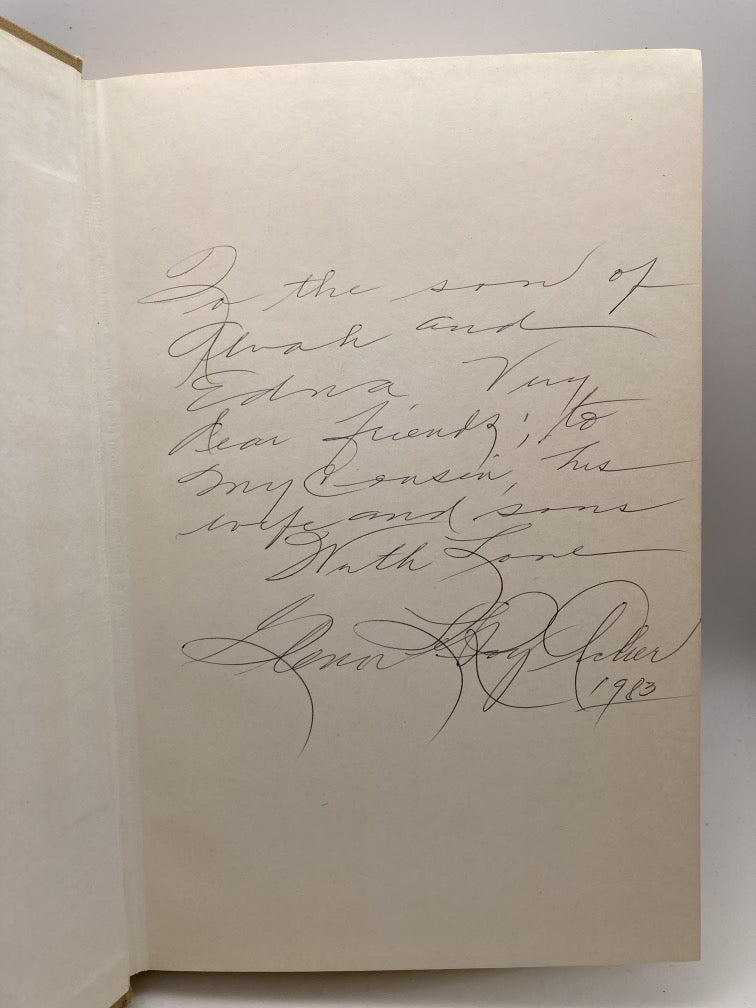 To the son of
Alvah and
Edna Very
dear friends; to
my Cousin, his
wife and sons
With Love
Glenn Acker
1983